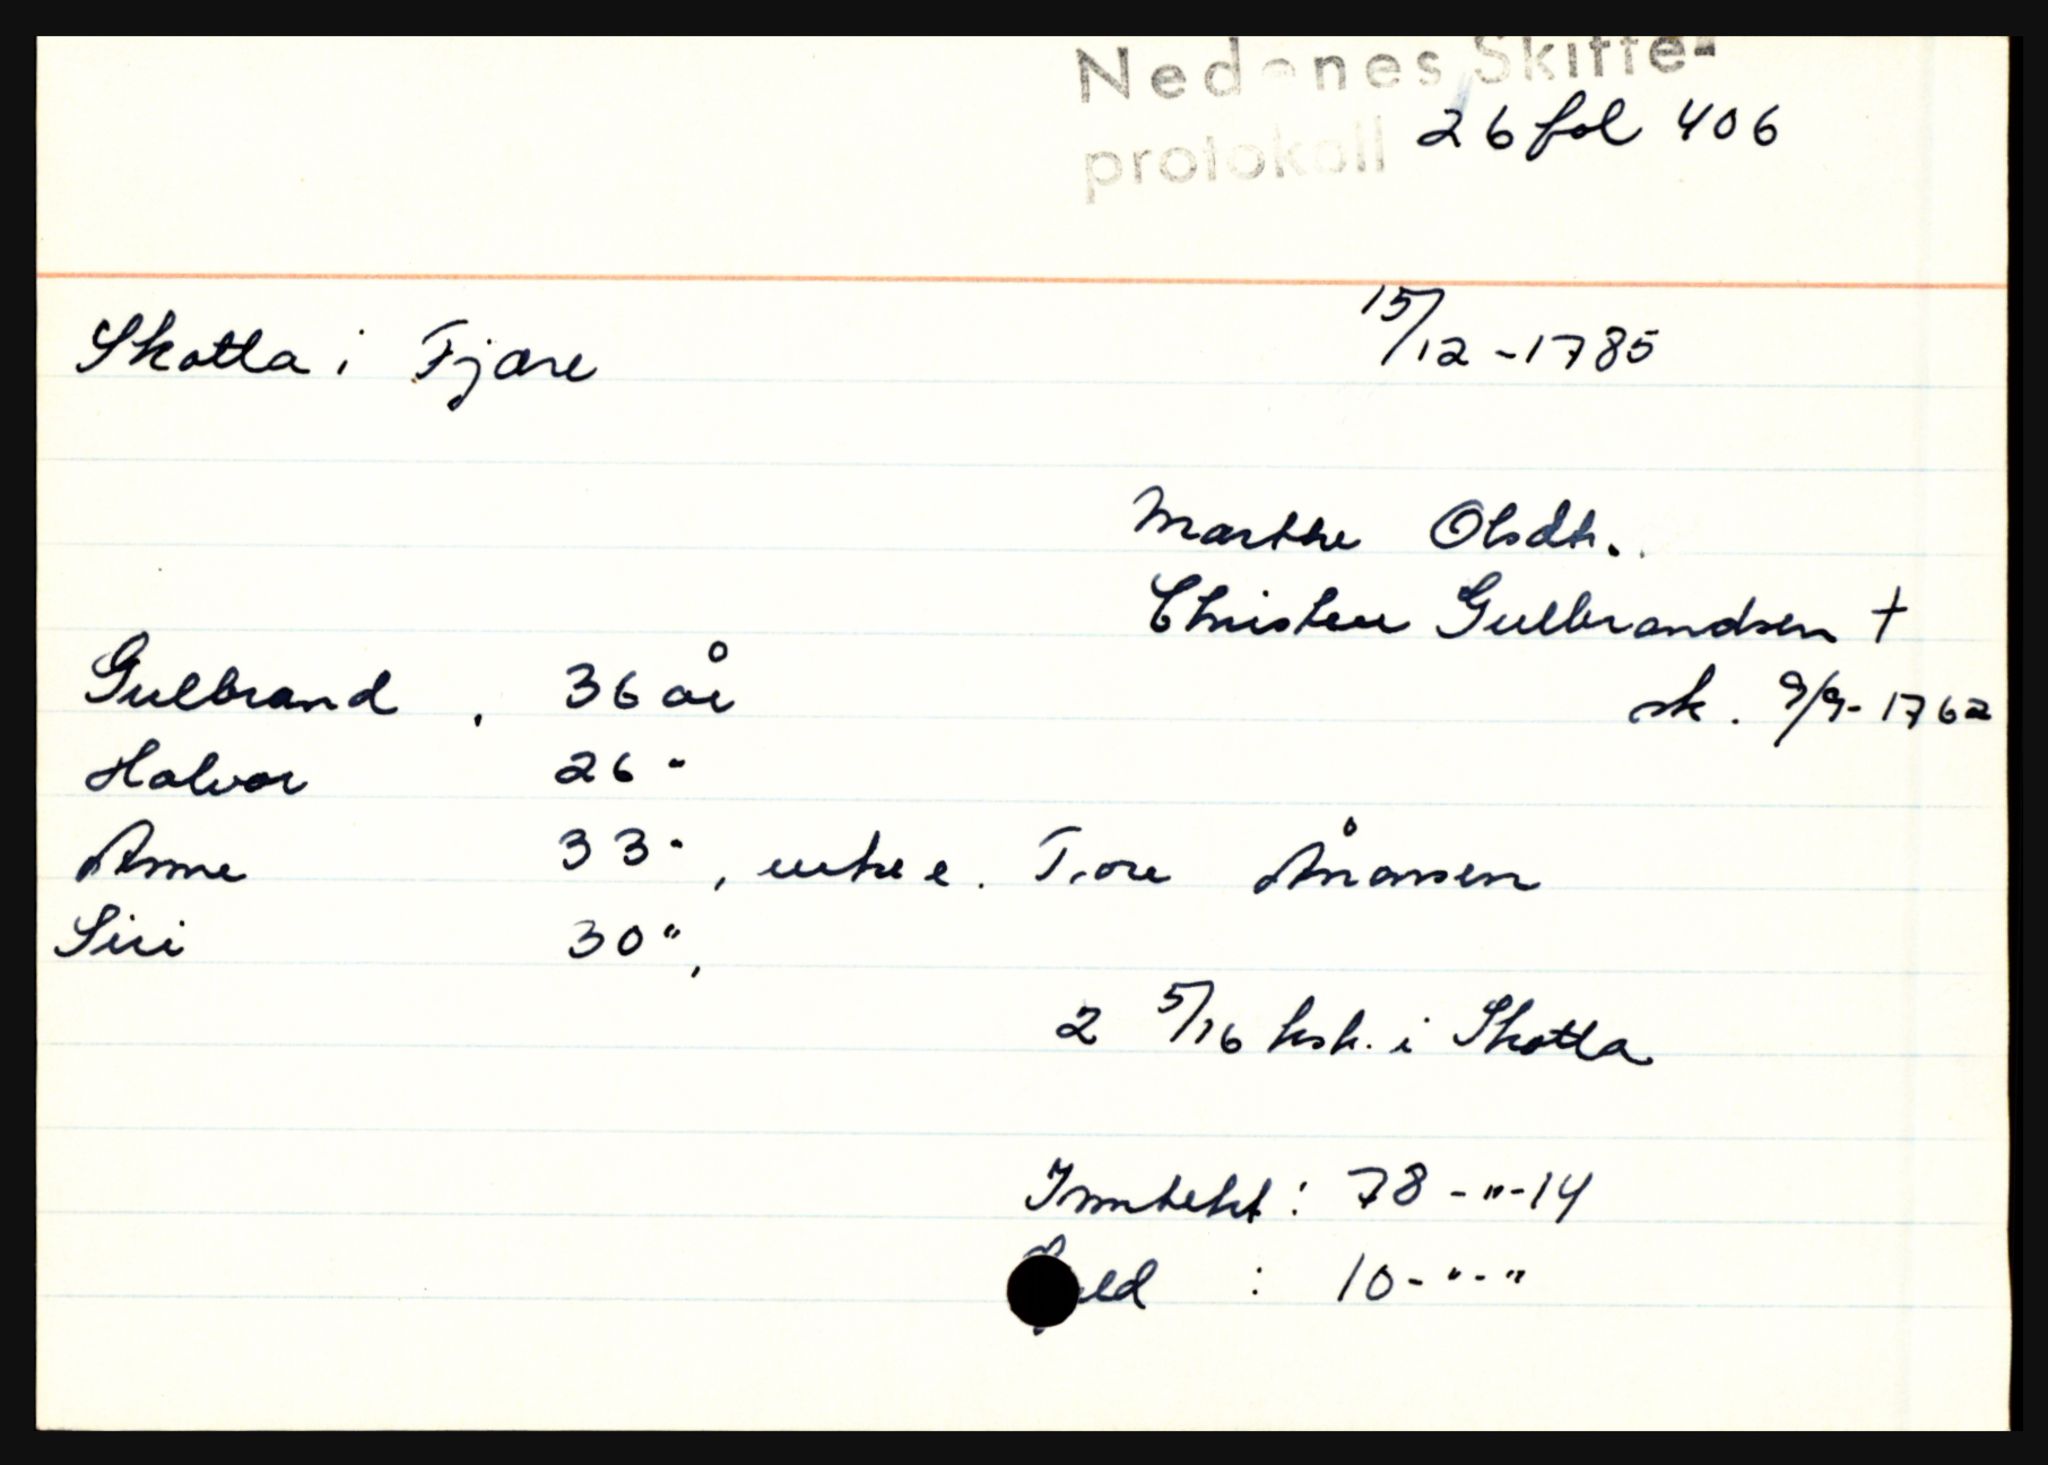 Nedenes Skifte-
protokoll 26 fol 406
Skotta i Fjære 15/12-1785
Marthe Olsdtr.
Christen Gulbrandsen †
sk. 9/9-1762
Gulbrand, 36 år
Halvor 26 "
Anne 33 ", enke e. Tore Ånonsen
Siri 30 ",
2 5/16 hsh. i Skotta
Inntekt: 78-"-14
Gjeld : 10-"-"